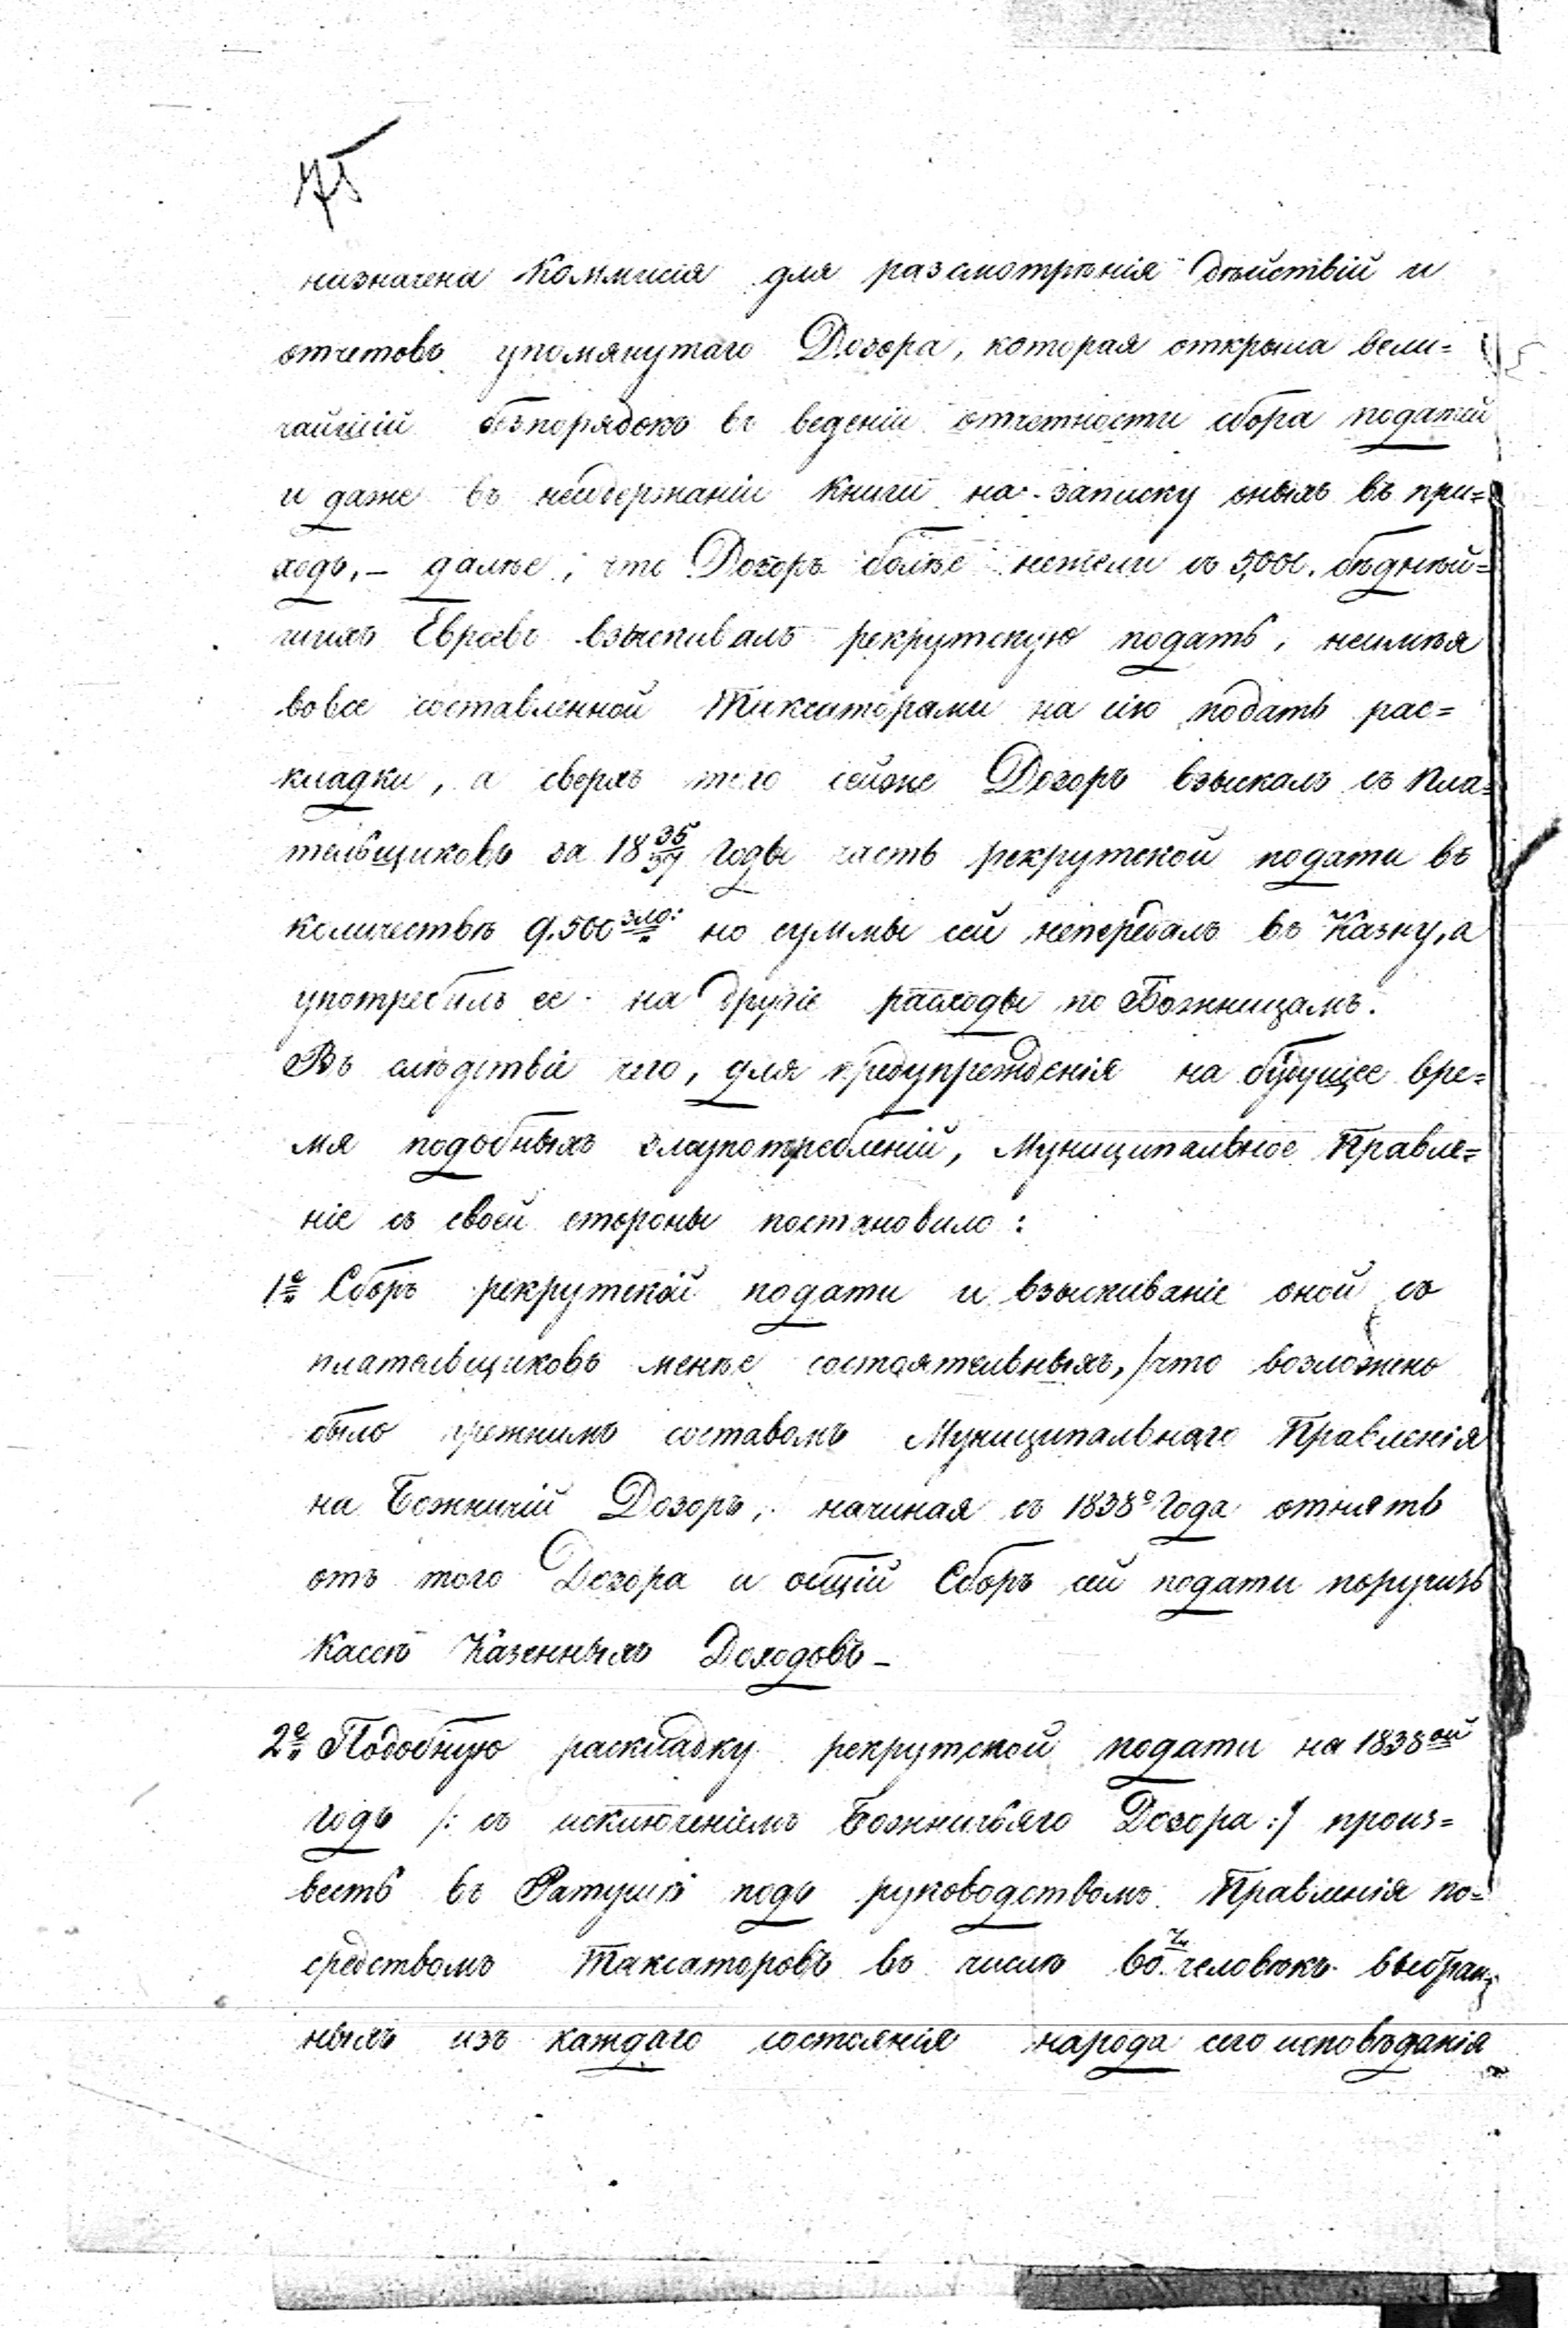 75
назначена Коммисія для разсмотрѣнія дѣйствій и
отчетовъ упомянутаго Дозора, которая открыла вели=
чайшій безпорядокъ въ веденіи отчетности сбора податей
и даже въ несодержаніи книги на записку оныхъ въ при=
ходъ, – далѣе, что Дозоръ болѣе нежели съ 5,000. бѣднѣй=
шихъ Евреевъ взыскивалъ рекрутскую подать, неимѣя
вовсе составленной Таксаторами на сію подать рас=
кладки, а сверхъ того сейже Дозоръ взыскалъ съ пла=
тельщиковъ за 18 35/37 годы часть рекрутской подати въ
количествѣ 9.500 зло: но суммы сей непередалъ въ Казну, а
употребилъ ее на другіе расходы по Божницамъ.
Въ слѣдствіе чего, для предупрежденія на будущее вре=
мя подобныхъ злаупотребленій, Муниципальное Правле=
ніе съ своей стороны постановило:
1е Сборъ рекрутской подати и взыскиваніе оной съ
плательщиковъ менѣе состоятельныхъ, /что возложено
было прежнимъ составомъ Муниципальнаго Правленія
на Божничій Дозоръ, начиная съ 1838о года отнять
отъ того Дозора и общій Сборъ сей подати поручить
Кассѣ Казенныхъ Доходовъ –
2е Подобную раскладку рекрутской подати на 1838ой
годъ /: съ исключеніемъ Божничьяго Дозора :/ произ=
весть въ Ратушѣ подъ руководствомъ Правленія по=
средствомъ Таксаторовъ въ числѣ 60 человѣкъ выбран=
ныхъ изъ каждаго состоянія народа сего исповѣданія